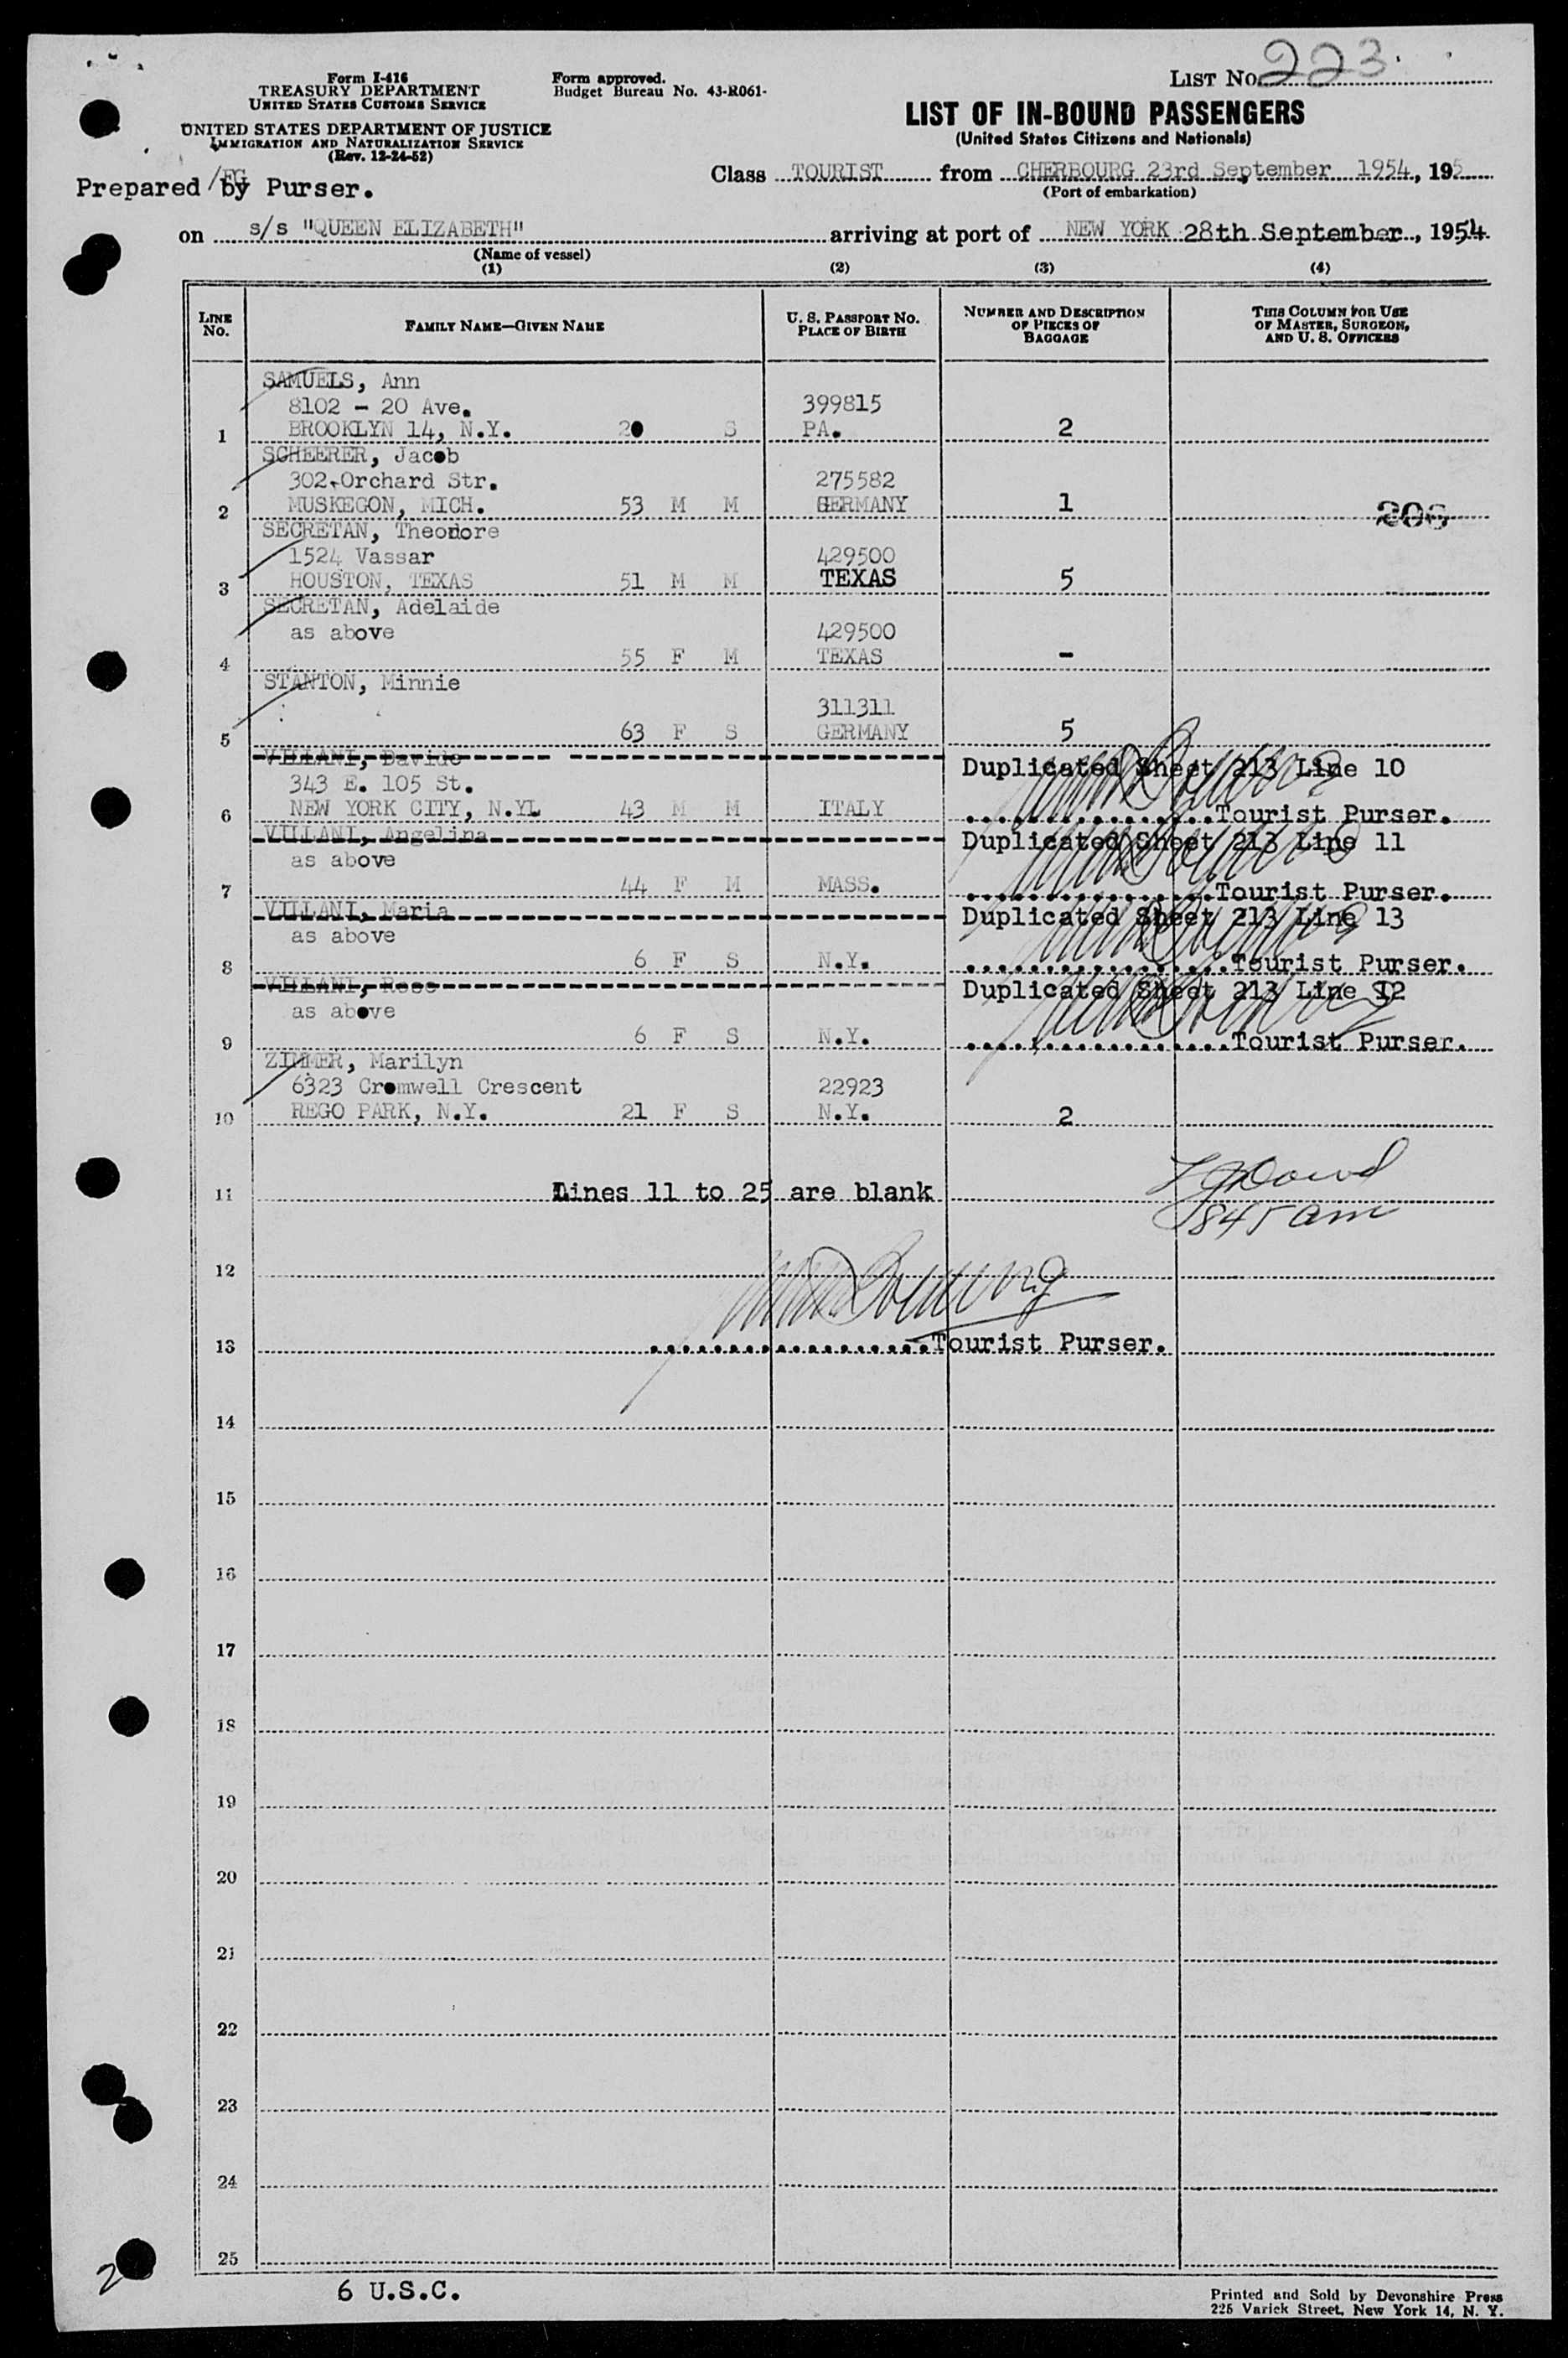 LIST No. 223
Form I-416
TREASURY DEPARTMENT
UNITED STATES CUSTOMS SERVICE
UNITED STATES DEPARTMENT OF JUSTICE
IMMIGRATION AND NATURALIZATION SERVICE
(Rev. 12-24-52)
Form approved.
Budget Bureau No. 43-R061-
LIST OF IN-BOUND PASSENGERS
(United States Citizens and Nationals)
Prepared by Purser.
Class TOURIST from CHERBOURG 23rd September, 1954, 195
(Port of embarkation)
on s/s "QUEEN ELIZABETH" arriving at port of NEW YORK 28th September, 1954
(Name of vessel)
(1) (2) (3) (4)
LINE No. FAMILY NAME—GIVEN NAME U. S. PASSPORT NO. PLACE OF BIRTH NUMBER AND DESCRIPTION OF PIECES OF BAGGAGE THIS COLUMN FOR USE OF MASTER, SURGEON, AND U. S. OFFICERS
SAMUELS, Ann
8102 - 20 Ave. 399815
1 BROOKLYN 14, N.Y. 20 S PA. 2
SCHEERER, Jacob
302 Orchard Str. 275582
2 MUSKEGON, MICH. 53 M M GERMANY 1 206
SECRETAN, Theodore
1524 Vassar 429500
3 HOUSTON, TEXAS 51 M M TEXAS 5
SECRETAN, Adelaide
as above 429500
4 55 F M TEXAS -
STANTON, Minnie
311311
5 63 F S GERMANY 5
VILLANI, Davide Duplicated Sheet 213 Line 10
343 E. 105 St.
6 NEW YORK CITY, N.YL 43 M M ITALY Tourist Purser.
VILLANI, Angelina Duplicated Sheet 213 Line 11
as above
7 44 F M MASS. Tourist Purser.
VILLANI, Maria Duplicated Sheet 213 Line 13
as above
8 6 F S N.Y. Tourist Purser.
VILLANI, Rose Duplicated Sheet 213 Line 12
as above
9 6 F S N.Y. Tourist Purser.
ZIMMER, Marilyn
6323 Cromwell Crescent 22923
10 REGO PARK, N.Y. 21 F S N.Y. 2
11 Lines 11 to 25 are blank
845 am
12
13 Tourist Purser.
14
15
16
17
18
19
20
21
22
23
24
25
6 U.S.C.
Printed and Sold by Devonshire Press
225 Varick Street, New York 14, N. Y.